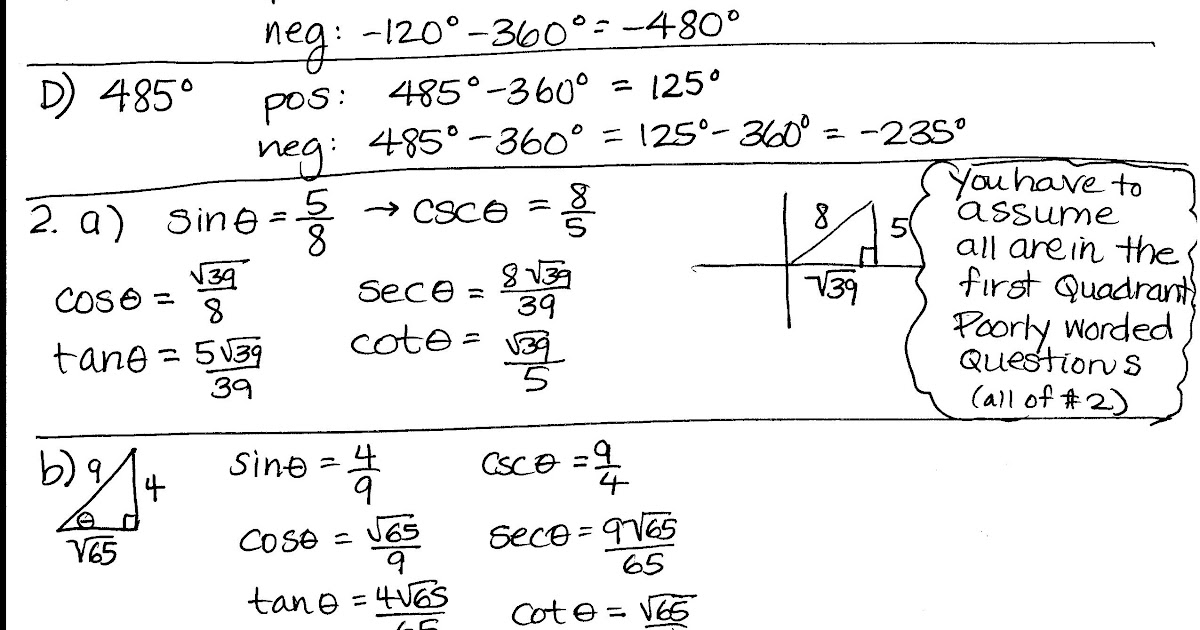 neg: -120° - 360° = -480°
D) 485° pos: 485° - 360° = 125°
neg: 485° - 360° = 125° - 360° = -235°
2. a) sinθ = 5/8 → cscθ = 8/5
cosθ = √39/8 secθ = 8√39/39
tanθ = 5√39/39 cotθ = √39/5
8 5
√39
You have to
assume
all are in the
first Quadrant
Poorly worded
Questions
(all of #2)
b) 9 4
θ
√65
sinθ = 4/9 cscθ = 9/4
cosθ = √65/9 secθ = 9√65/65
tanθ = 4√65/65 cotθ = √65